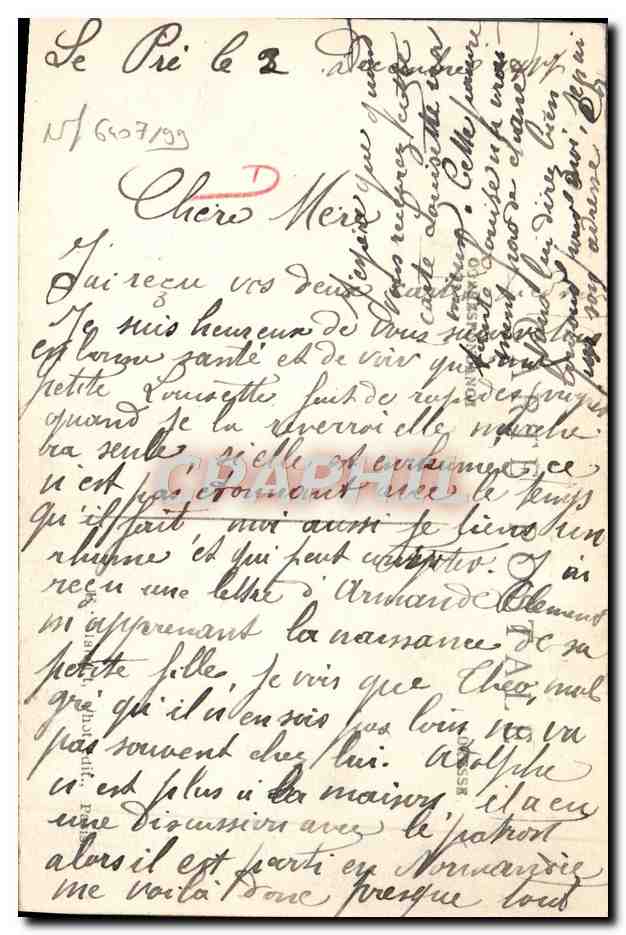 Le Pré le 2 Décembre
N/ 6407/99
Chère Mère
J'ai reçu vos deux
Je suis heureux de vous savoir
en bonne santé et de voir que
petite Louisette fait de rapides
quand je la reverrai elle marche
ra seule si elle est enrhumée ce
n'est pas étonnant avec le temps
qu'il fait, moi aussi je tiens un
rhume et qui peut compter. J'ai
reçu une lettre d'Armande Clément
m'apprenant la naissance de sa
petite fille, je vois que Théo, mal
gré qu'il n'en sois pas loin ne va
pas souvent chez lui. Adolphe
n'est plus à la maison, il a eu
une discussion avec le patron
alors il est parti en Normandie
me voilà donc presque tout
J'espère que quand
vous recevrez cette
carte Louisette ira
mieux. Cette pauvre
tante Louise n'a
vraiment pas de chance
Vous lui direz bien
bonjour pour moi, si j'ai
son adresse
CARTE POSTALE
CORRESPONDANCE
ADRESSE
CPAPHIL